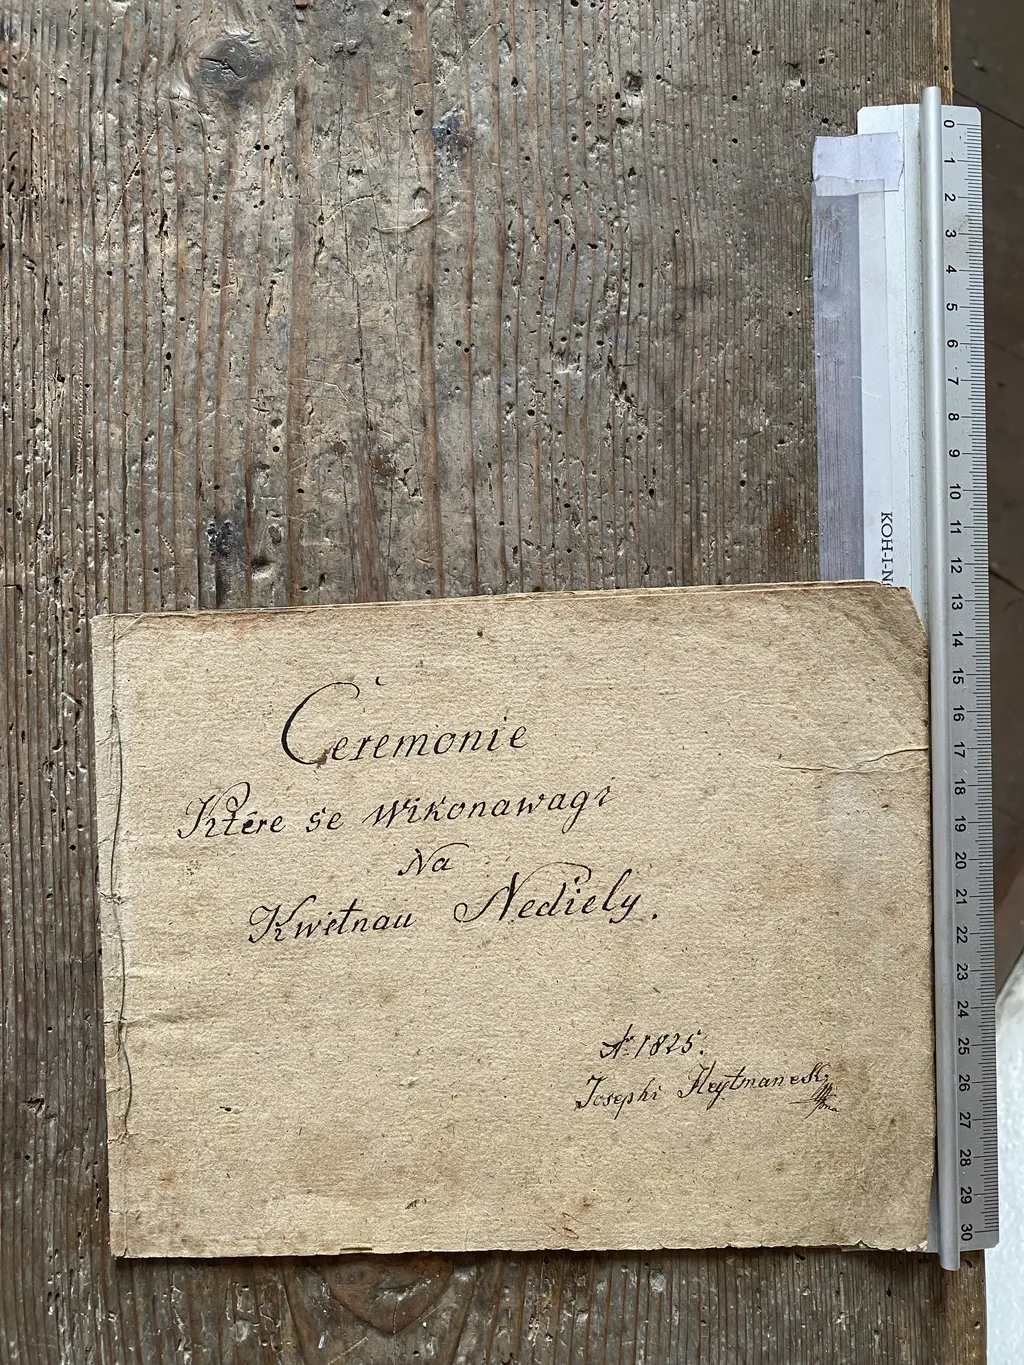 Čeremonie
Ktére se wikonawagi
Na
Kwětnau Nediely.
Aº 1825.
Josephi
KOH-I-N
0
1
2
3
4
5
6
7
8
9
10
11
12
13
14
15
16
17
18
19
20
21
22
23
24
25
26
27
28
29
30